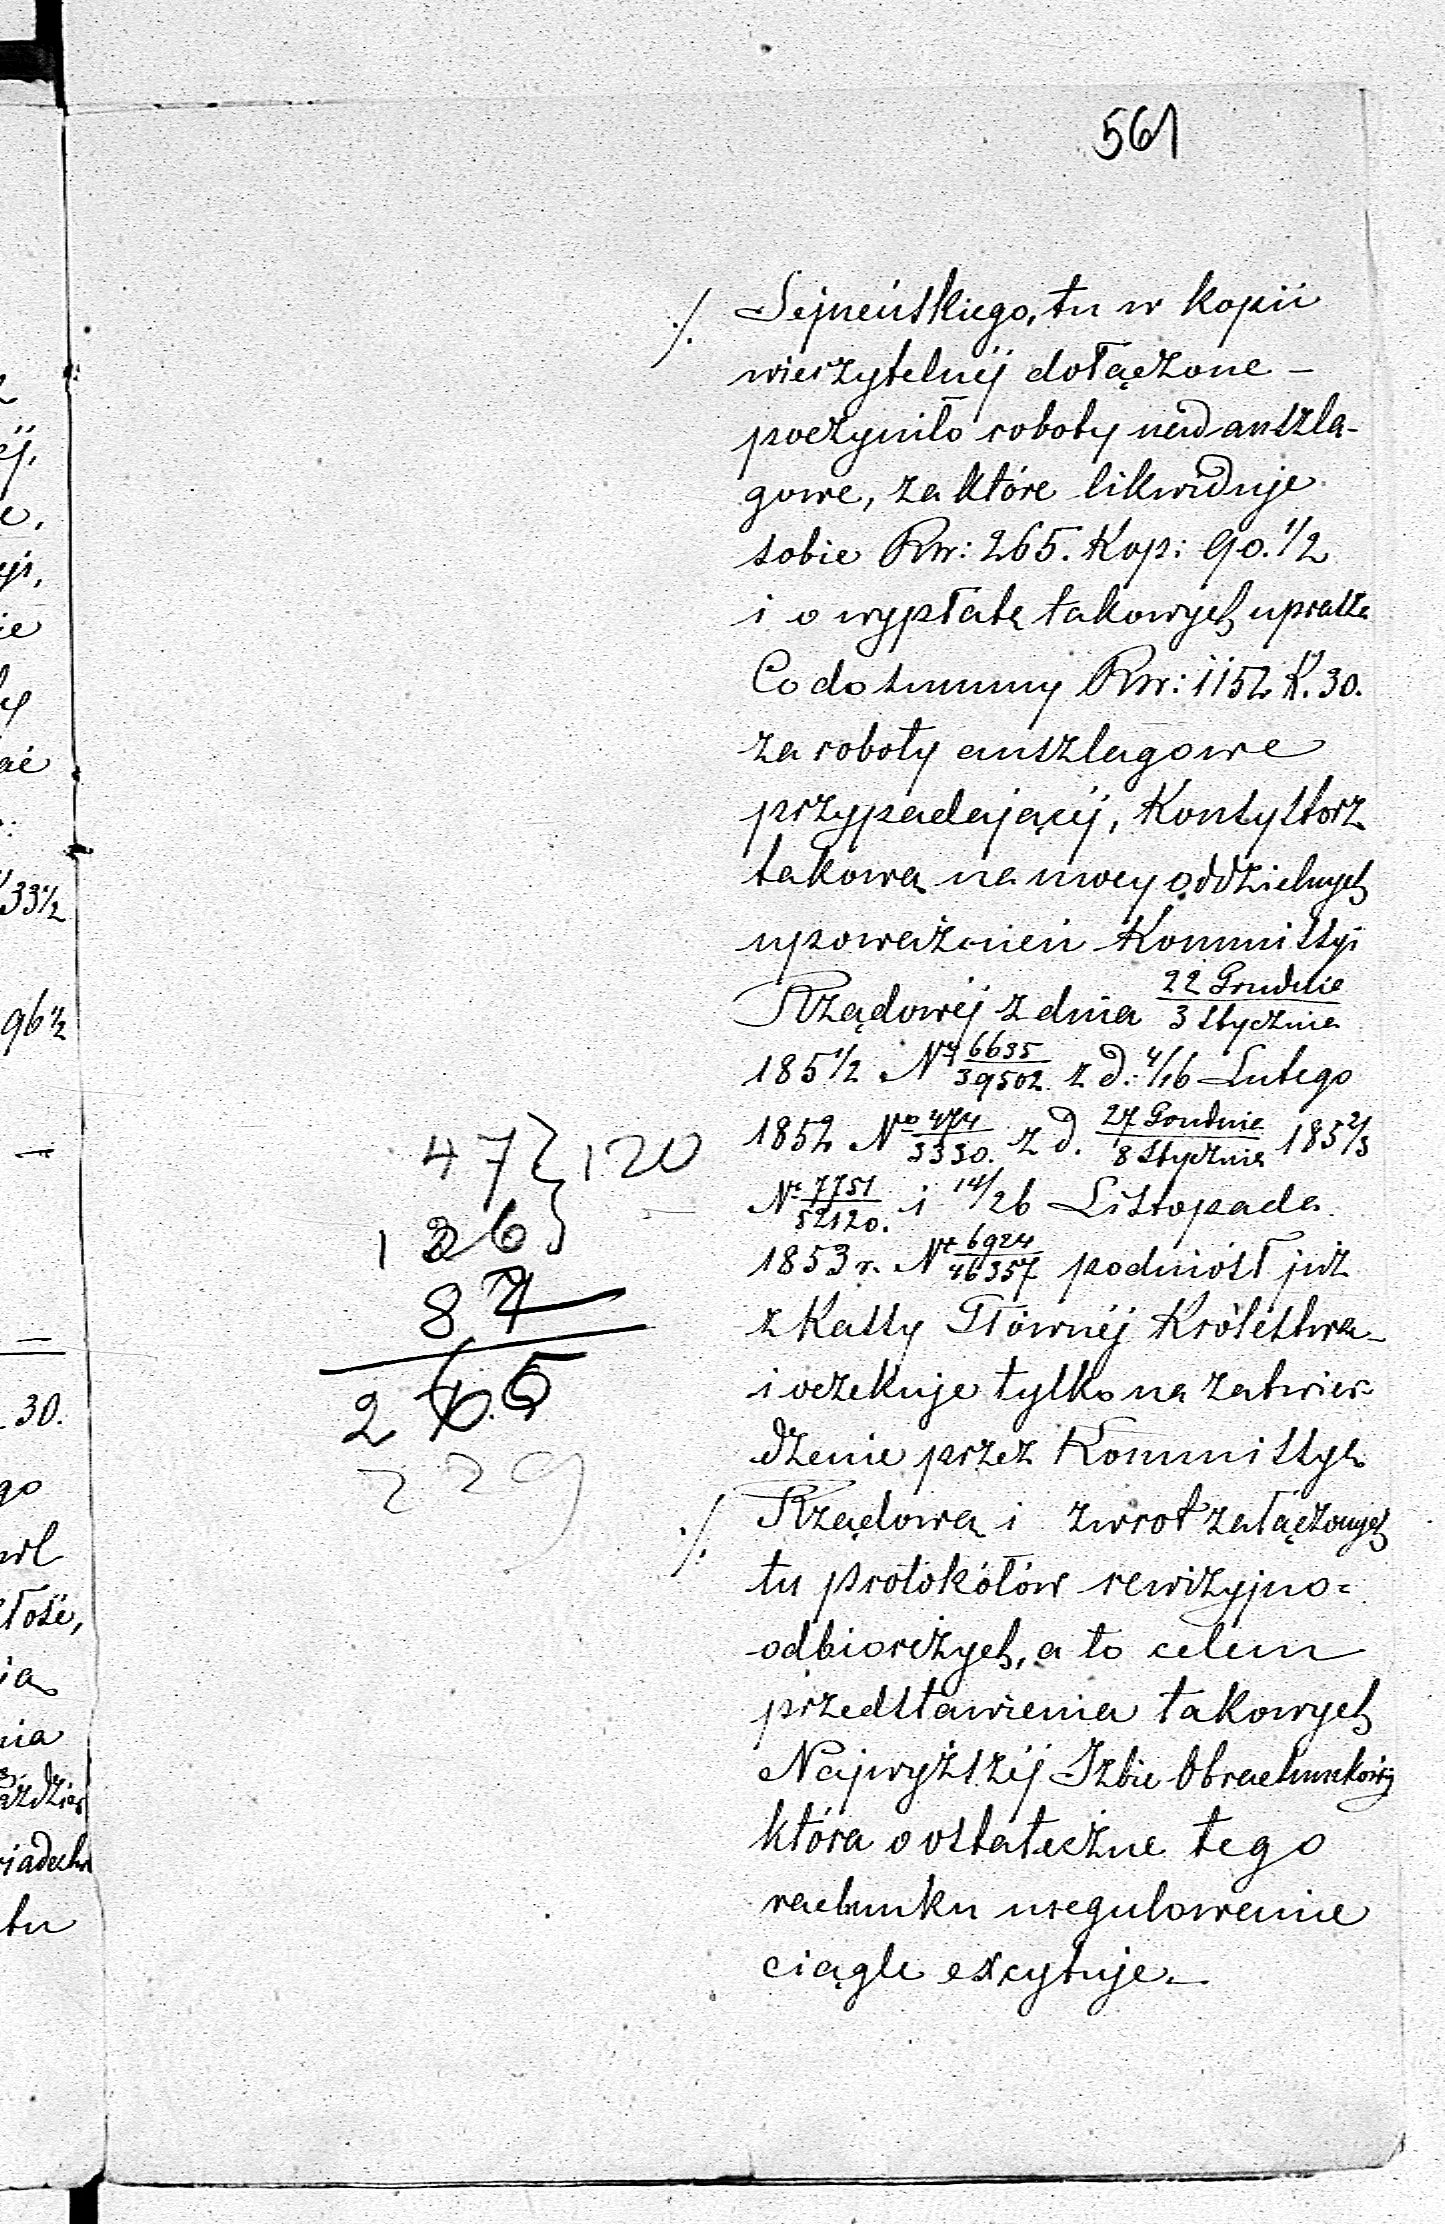 561
./. Sejneńskiego, tu w kopii
wierzytelnéj dołączone –
poczyniło roboty nadanszla-
gowe, za które likwiduje
sobie Rsr: 265. Kop: 90.1/2
i o wypłatę takowych uprasza
Co do summy Rsr: 1152 K. 30.
za roboty anszlagowe
przypadającéj, Konsystorz
takową na mocy oddzielnych
upoważnień Kommissyi
Rządowéj z dnia 22 Grudnia/3 Stycznia
185 1/2 Nr 6635/39502 z d: 4/16 Lutego
1852 No 474/3330. z d. 27 Grudnia/8 Stycznia 185 2/3
Nr 7751/52120. i 14/26 Listopada
1853 r. Nr 6924/46357 podniósł już
z Kassy Głównéj Królestwa –
i oczekuje tylko na zatwier-
dzenie przez Kommissyę
./. Rządową i zwrot załączonych
tu protokółów rewizyjno=
odbiorczych, a to celem
przedstawienia takowych
Najwyższéj Izbie Obrachunkowéj
która o ostateczne tego
rachunku uregulowanie
ciągle excytuje. –
47 } 120
126
87
265
229
33 1/2
96 1/2
30.